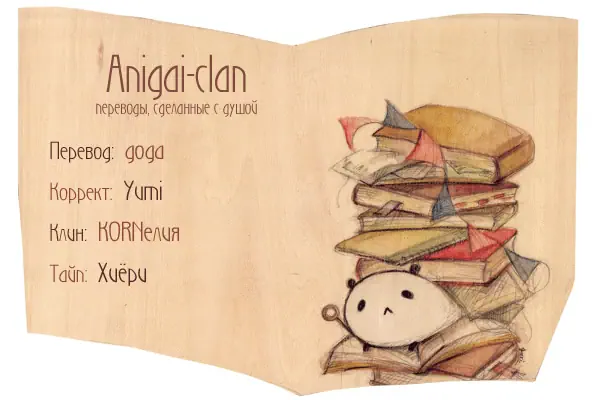 Anigai-clan
переводы, сделанные с душой
Перевод: дода
Коррект: Yumi
Клин: KORNелия
Тайп: Хиёри